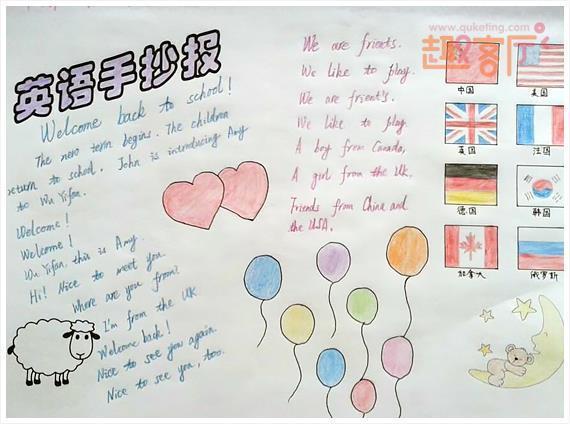 www.quketing.com
趣客厅
英语手抄报
Welcome back to school!
The new term begins. The children
return to school. John is introducing Amy
to Wu Yifan.
Welcome!
Welcome!
Wu Yifan, this is Amy.
Hi! Nice to meet you.
Where are you from?
I'm from the UK
Welcome back!
Nice to see you again.
Nice to see you, too.
We are friends.
We like to play.
We are friend's.
We like to play.
A boy from Canada,
A girl from the UK,
Friends from China and
the USA.
中国
美国
英国
法国
德国
韩国
加拿大
俄罗斯